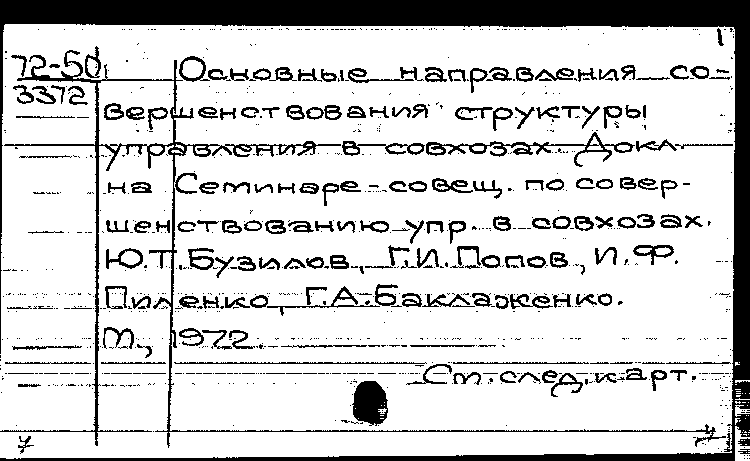 1
72-50
3372
Основные направления со-
вершенствования структуры
управления в совхозах. Докл.
на Семинаре-совещ. по совер-
шенствованию упр. в совхозах.
Ю.Т.Бузилов, Г.И.Попов, И.Ф.
Пиленко, Г.А.Баклаженко.
М., 1972.
См. след. карт.